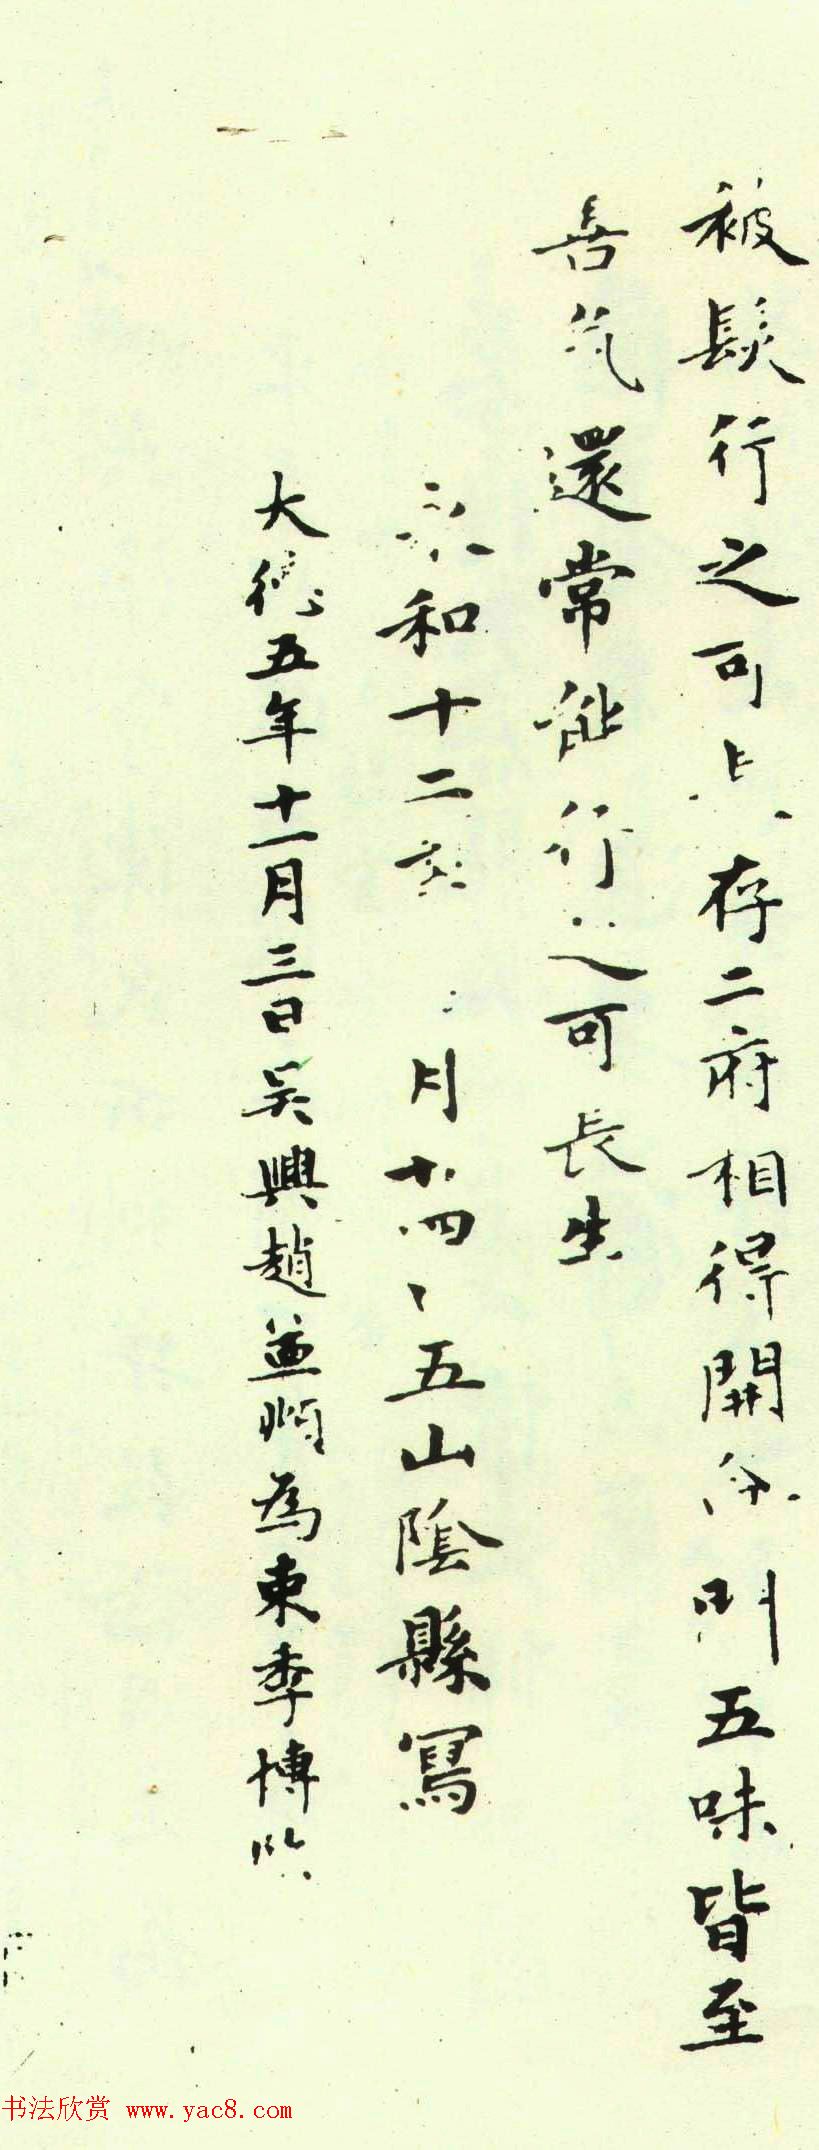 被髮行之可長存二府相得開命門五味皆至
善氣還常能行之可長生
永和十二年 月廿四 五山陰縣寫
大德五年十一月三日吴興趙孟頫為束季博臨
书法欣赏 www.yac8.com